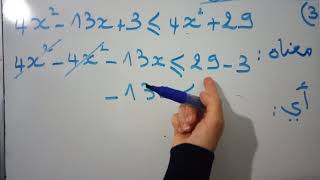 3) 4x² - 13x + 3 ≤ 4x² + 29
معناه: 4x² - 4x² - 13x ≤ 29 - 3
أي: - 13